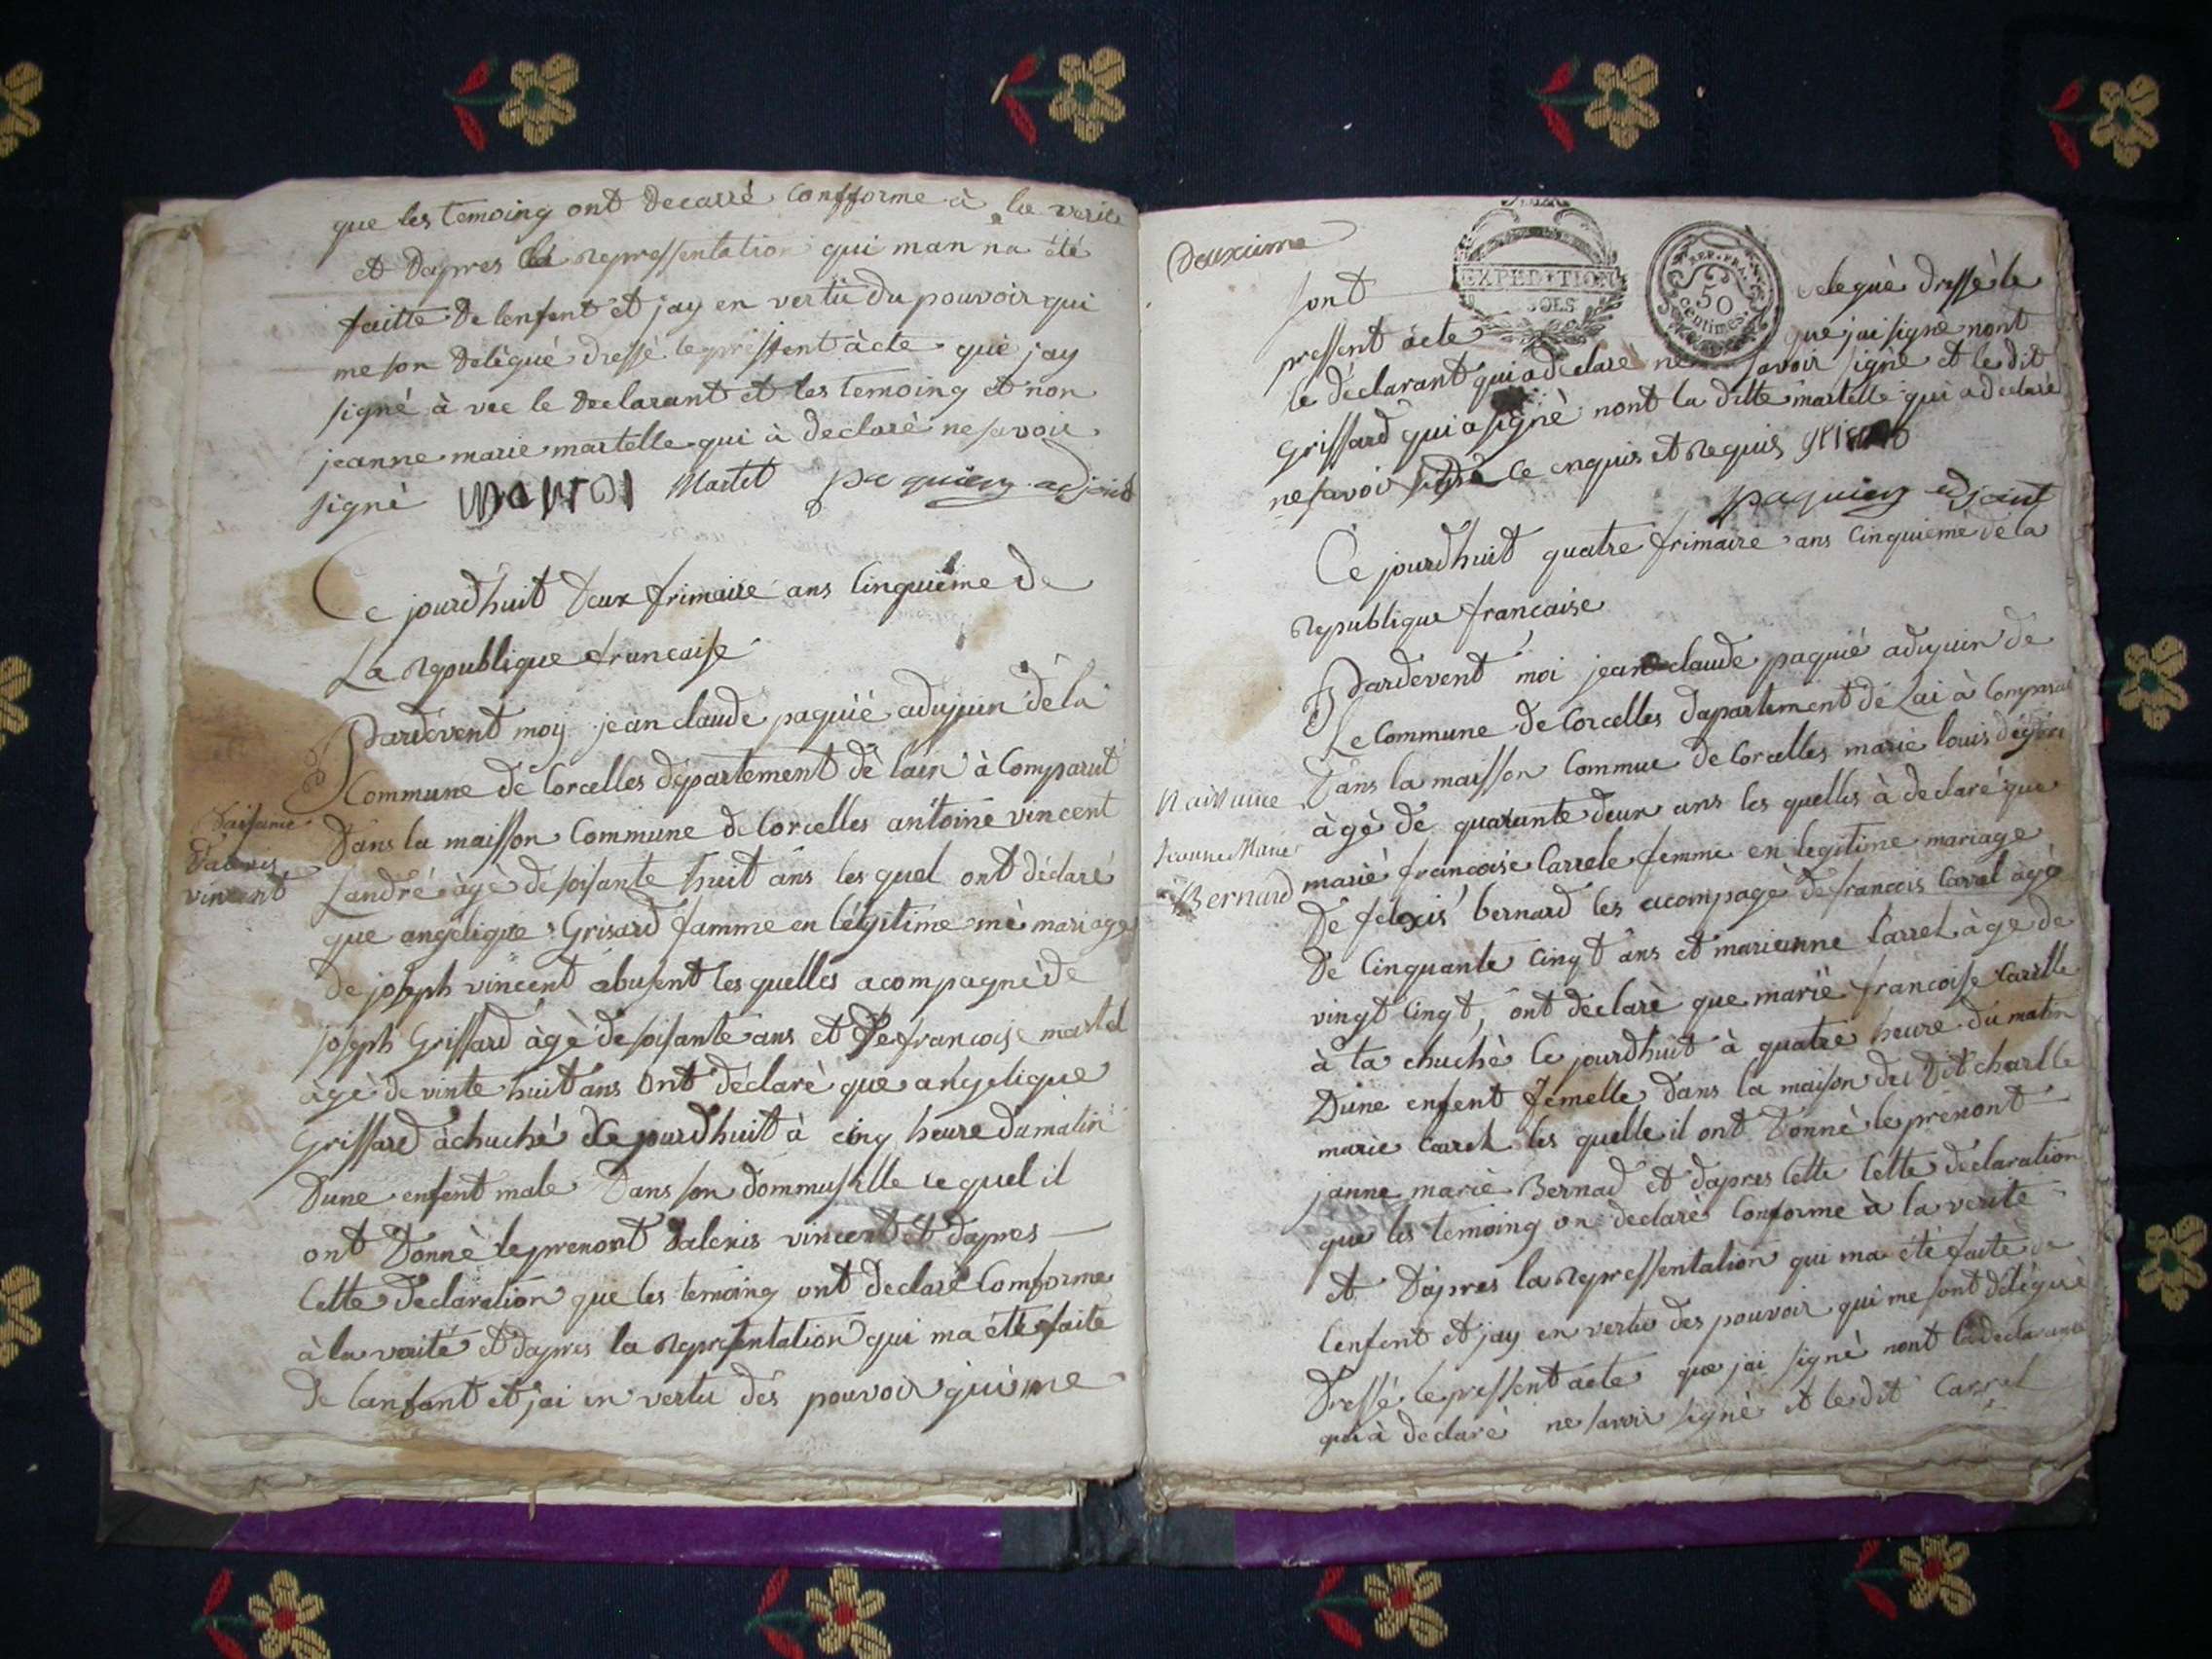 que les temoing ont decarré Confforme à la verité
et dapres la repressentation qui man na été
faitte de lenfent et jay en vertu du pouvoir qui
me son delégué dressé le pressent àcte que jay
signé à vec le declarant et les temoing et non
jeanne marie martelle qui à declaré ne savoir
signé Martet paquiez adjoint
Ce jourdhuit deux frimaire ans Cinquiéme de
La republique francaisse
Pardevent moy jean claude paquié adujuin de la
Commune de Corcelles département de lain à Comparut
dans la maisson Commune de Corcelles antoine vincent
Landré àgé de soisante huit ans les quel ont déclaré
que angelique Grisard famme en légitime mé mariage
de joseph vincent abusent les quelles acompagné de
joseph Grissard àgé de soisante ans et de francois martel
àgé de vinte huit ans ont déclaré que angelique
Grissard àchuché Ce jourdhuit à cinq heure du matin
dune enfent male dans son dommusille le quel il
ont donné le prenont dalexis vincent et dapres
Cette declaration que les temoing ont declaré Comforme
à la verité et dapres la representation qui ma été faite
de lanfant et jai en vertu dés pouvoir qui me
vincent
Deuxieme
EXPEDITION
SOLS
REP. FRA.
50
centimes
sont delegué dressé le
pressent àcte que jai signé nont
le déclarant qui a declare ne savoir signé et le dit
Grissard qui a signé nont la ditte martelle qui a declaré
ne savoir signé Ce enquis et requis
paquiez adjoint
Cé jourdhuit quatre frimaire ans Cinquiéme de la
republique francaise
Pardevent moi jean claude paquié adujuin de
Le Commune de Corcelles dapartement de Lai à Comparut
dans la maisson Commue de Corcelles marie louis
àgé de quarante deux ans les quelles à declaré que
marié francoise Carrele femme en legitime mariage
De felexis bernard les acompagé de francois Carrel àgé
de Cinquante Cinqt ans et marieanne Carrel àge de
vingt Cingt, ont declaré que marie francoise Carelle
à ta chuché Ce jourdhuit à quatre heure du matin
Dune enfent femelle dans la maison du dit charlle
marie Carel les quelle il ont donné le prenont
janne marie Bernad et dapres Cette Cette declaration
que les temoing on declaré Conforme à la verité
et dapres la repressentation qui ma été faite de
lenfent et jay en vertu des pouvoir qui me sont délégué
dressé le pressent acte que jai signé nont la declarante
qui à declaré ne savoir signé et le dit Carrel
Naissance
Jeanne Marie
Bernard